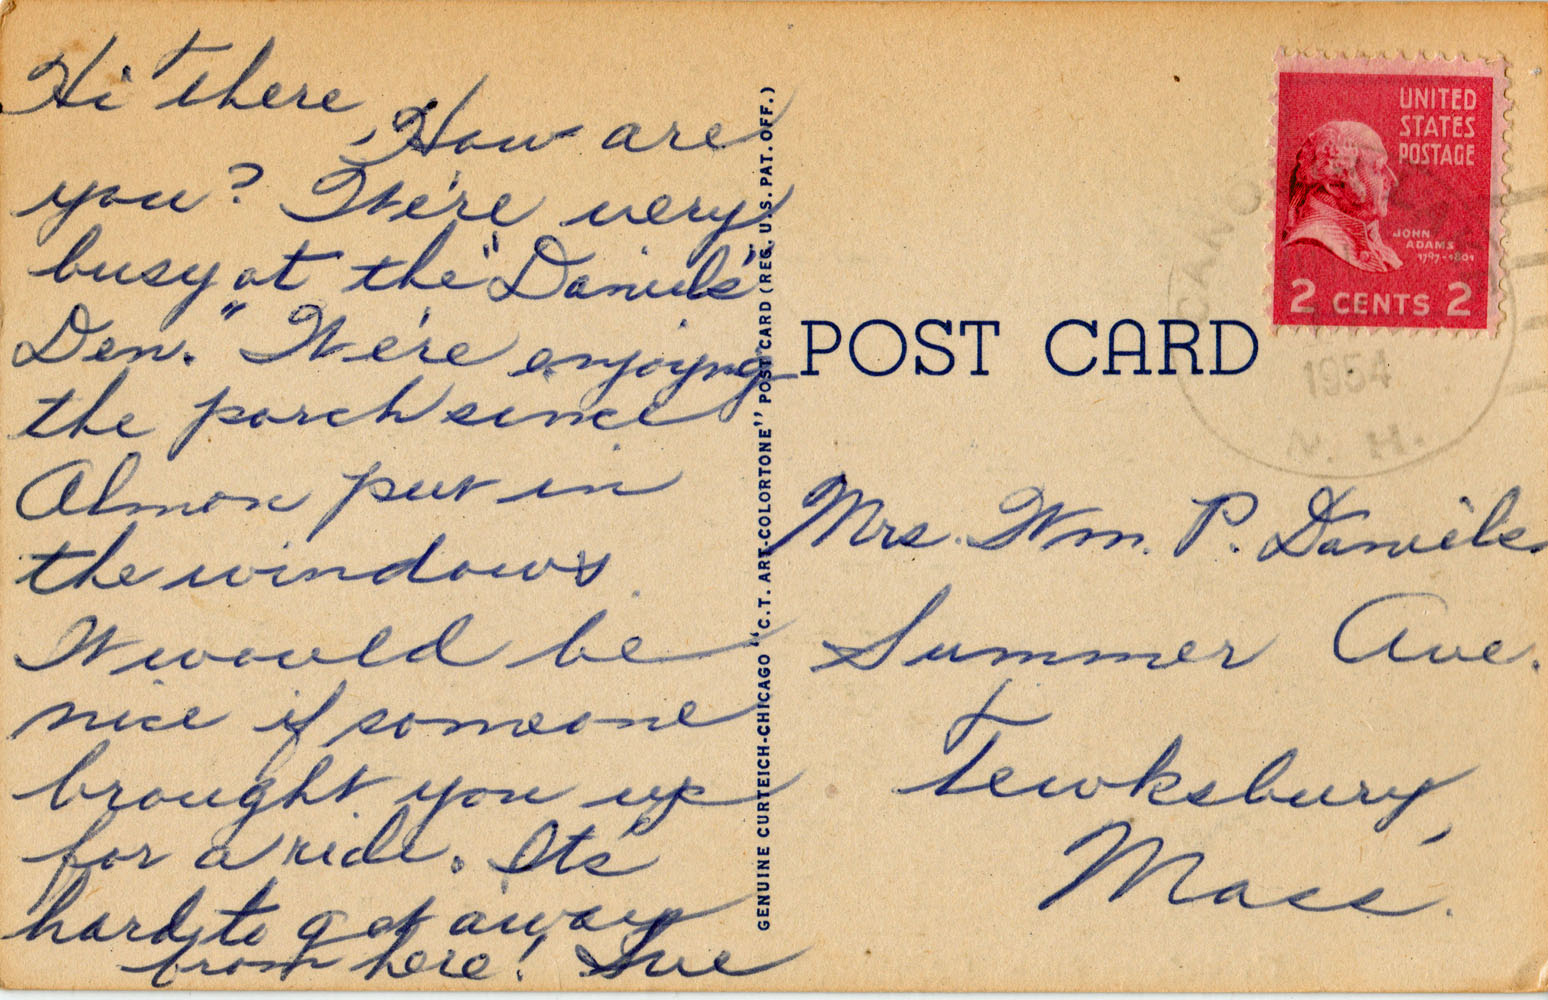 Hi there,
How are
you? We're very
busy at the "Daniels'
Den." We're enjoying
the porch since
Almon put in
the windows.
It would be
nice if someone
brought you up
for a ride. It's
hard to get away
from here! Sue
GENUINE CURTEICH-CHICAGO "C.T. ART-COLORTONE" POST CARD (REG. U.S. PAT. OFF.)
POST CARD
UNITED
STATES
POSTAGE
JOHN
ADAMS
1797-1801
2 CENTS 2
1954
N. H.
Mrs. Wm. P. Daniels
Summer Ave.
Tewksbury,
Mass.